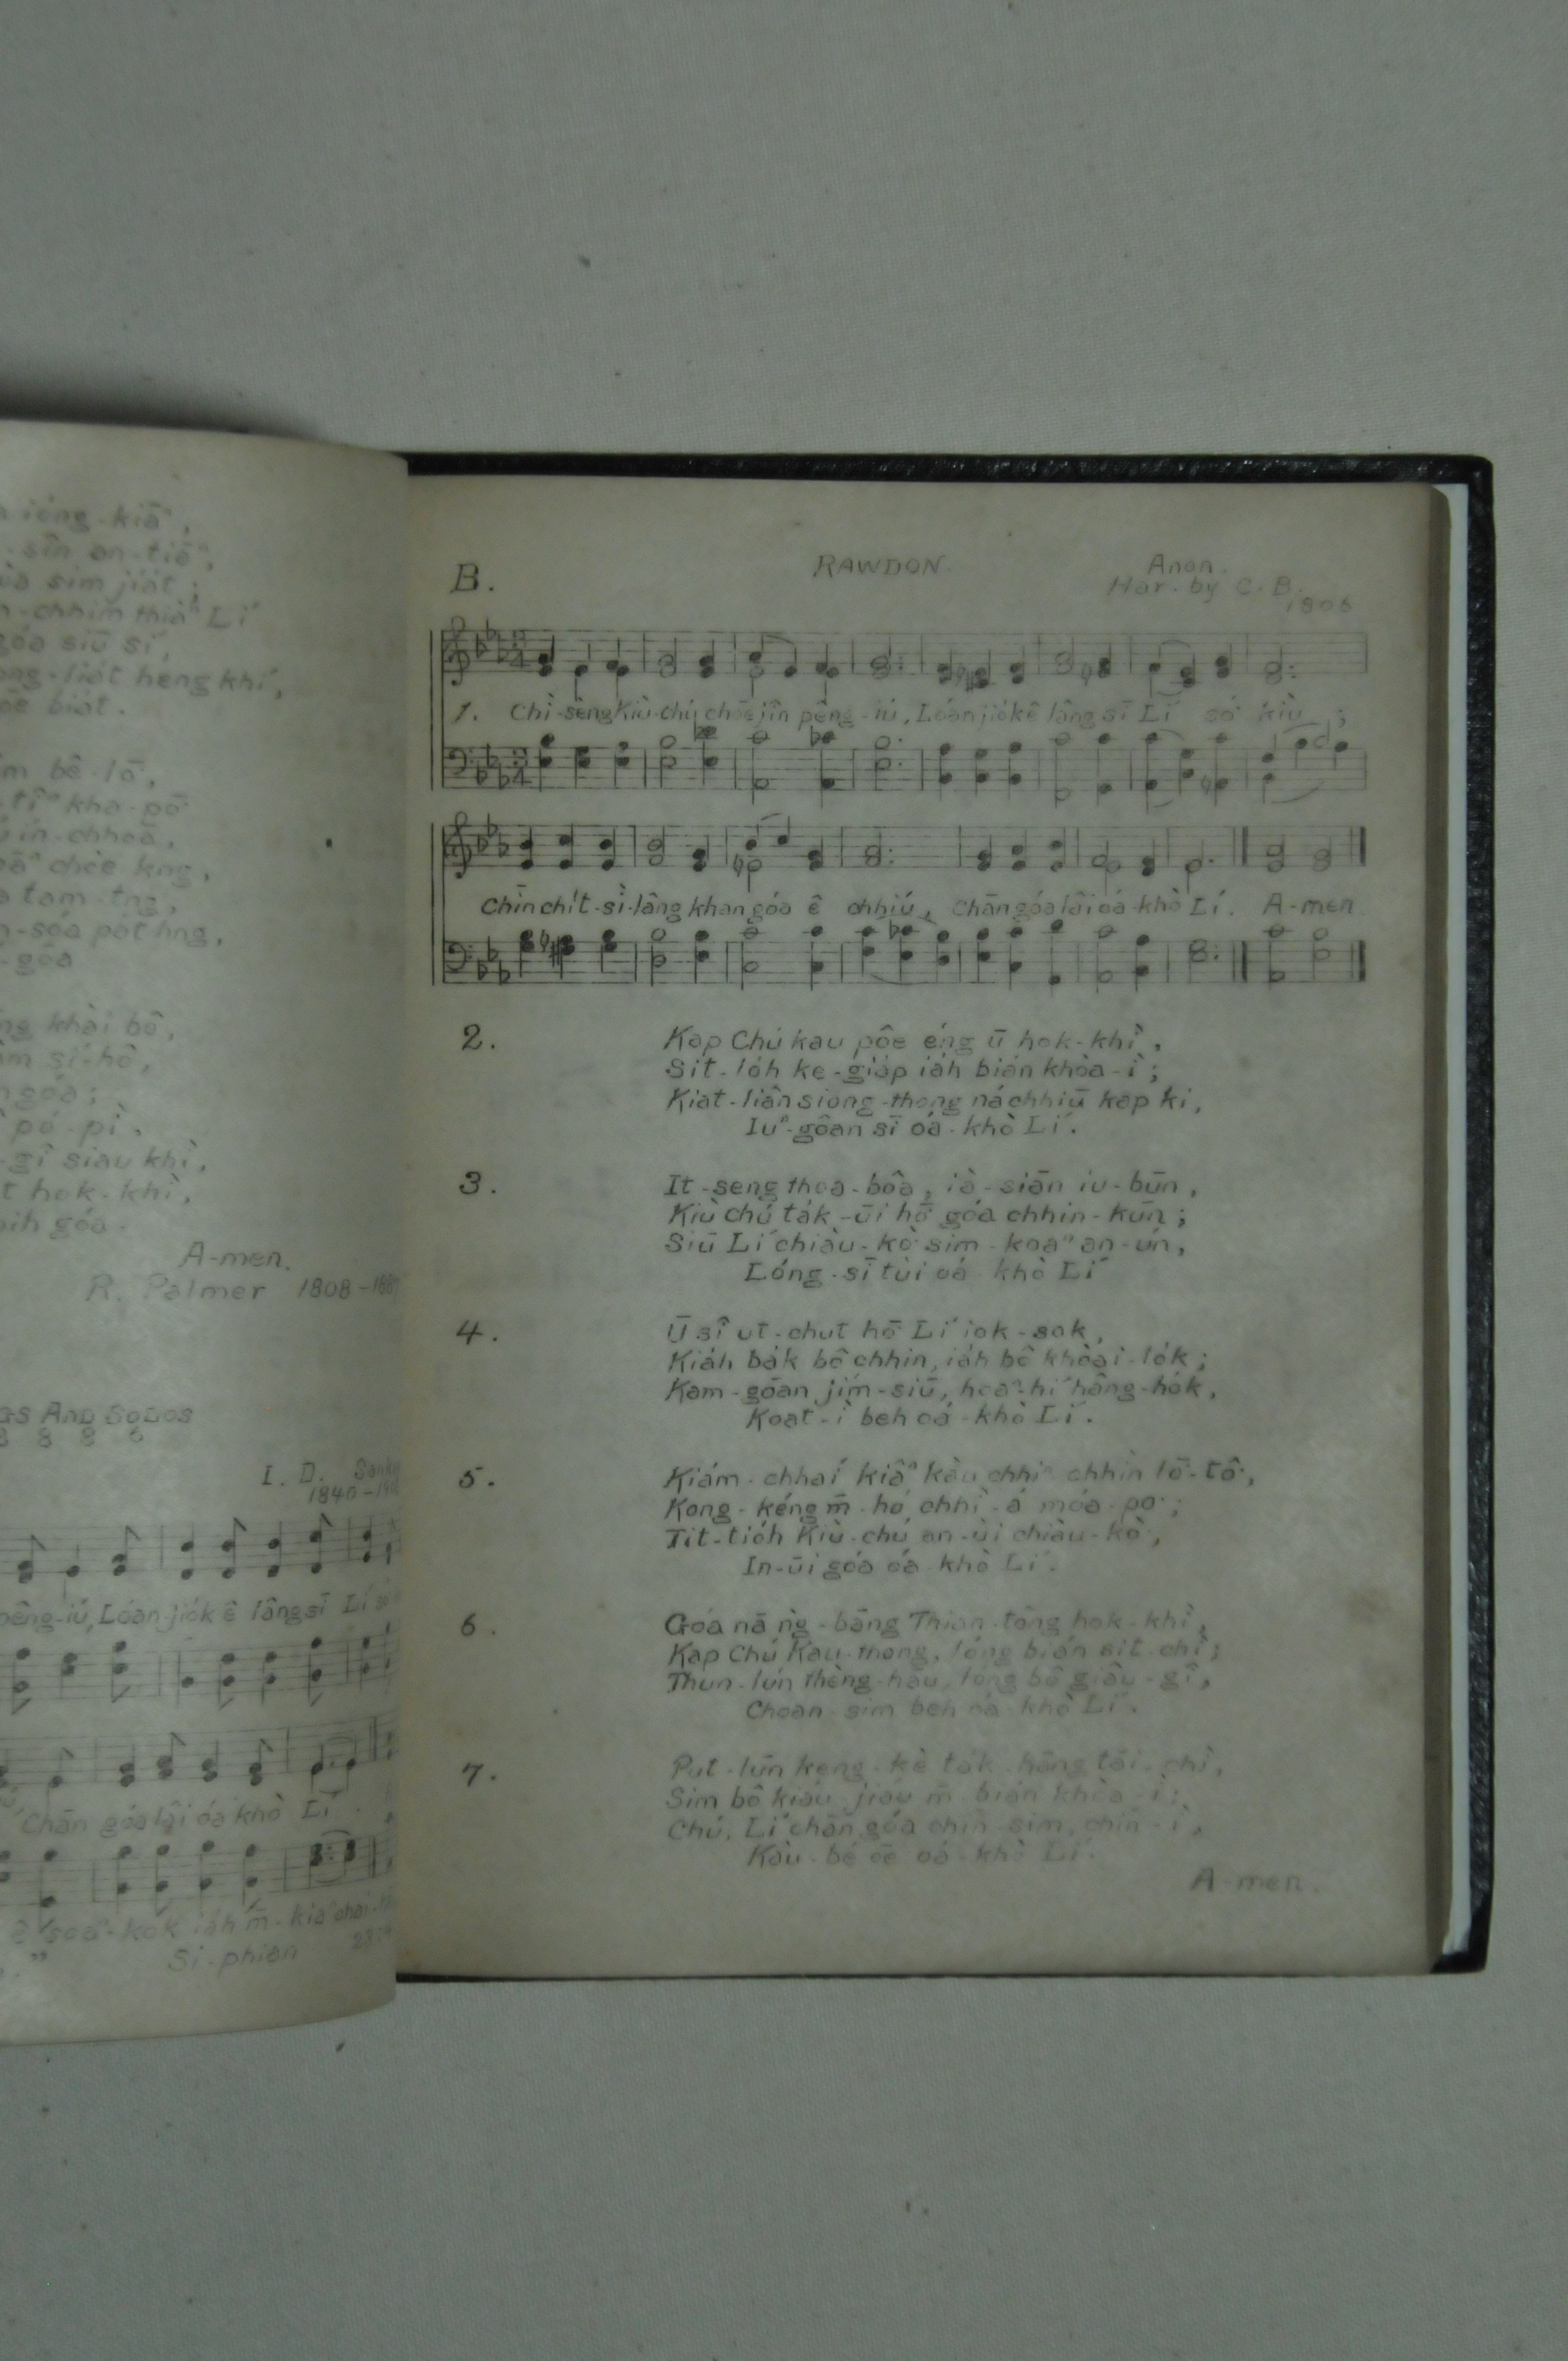 ióng-kiāⁿ,
sîn an-tiāⁿ,
sim jia̍t;
-chhim thiàⁿ Lí
góa siū sí,
-lia̍t hèng khí,
bia̍t.
bê-lō͘,
-tîⁿ kha-pō͘
ín-chhoā,
chòe kng,
tam-tng,
-sóa pōt hng,
-góa
khài bô,
sí-hô,
góa;
pó-pì,
-gî siau khì,
hok-khì,
góa.
A-men.
R. Palmer 1808-1887
AND SOLOS
8 8 8 6
I. D. Sankey
1840-
pêng-iú, Lóan-jio̍k ê lâng sī Lí só͘
Chān góa lâi óa khò Lí.
ê soaⁿ-kok iáh m̄-kiaⁿ chai-
Si-phian
B.
RAWDON.
Anon.
Har. by C. B.
1806
1. Chì-sèng Kiù-chú chòe jîn pêng-iú, Lóan jio̍k ê lâng sī Lí só͘ kiù;
Chīn chit-sì-lâng khan góa ê chhiú, Chān góa lâi óa-khò Lí. A-men
2.
Kap Chú kau pôe éng ū hok-khì,
Sit-lo̍h ke-gia̍p iáh bián khòa-ì;
Kiat-liân siong-thong ná chhiū kap ki,
Iuⁿ-gôan sī óa-khò Lí.
3.
It-seng thoa-bôa, ià-siān iu-būn,
Kiù chú ta̍k-ūi hō͘ góa chhin-kūn;
Siū Lí chiàu-kò͘ sim-koaⁿ an-ún,
Lóng-sī tùi óa-khò Lí
4.
Ū sî ut-chut hō͘ Lí iok-sok,
Kiáh ba̍k bô chhin, iáh bô khòai-lo̍k;
Kam-góan jím-siū, hoaⁿ-hí hâng-ho̍k,
Koat-ì beh óa-khò Lí.
5.
Kiám-chhaí kiâⁿ kàu chhiⁿ chhìn lō͘-tô͘,
Kong-kéng m̄-hó, chhì-á móa-po͘;
Tit-tio̍h Kiù-chú an-ùi chiàu-kò͘,
In-ūi góa óa-khò Lí.
6.
Góa nā ǹg-bāng Thian-tông hok-khì,
Kap Chú Kau-thong, lóng bián sit-chì;
Thun-lún thèng-hāu, lóng bô giâu-gî,
Choan-sim beh óa-khò Lí.
7.
Put-lūn keng-kè ta̍k hāng tāi-chì,
Sim bô kiáu-jiáu m̄ bián khòa-ì;
Chú, Lí chān góa chin-sim, chin-ì,
Kàu-bé ōe óa-khò Lí.
A-men.